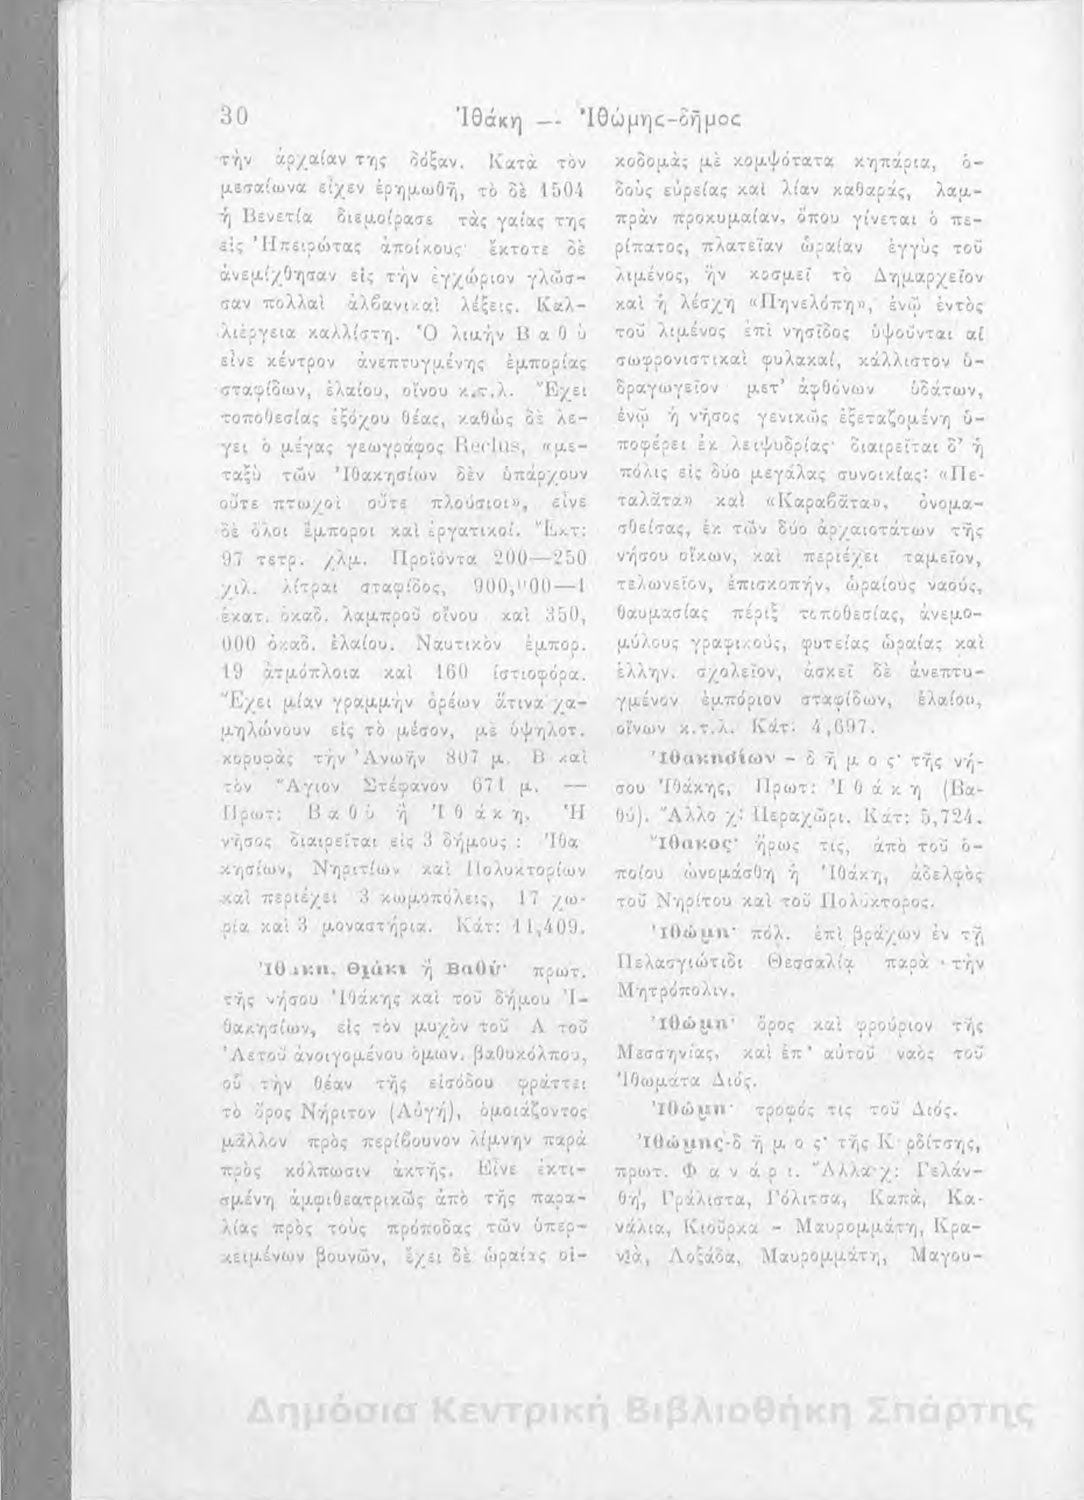 30
Ἰθάκη — Ἰθώμης-δῆμος
τὴν ἀρχαίαν της δόξαν. Κατὰ τὸν
μεσαίωνα εἶχεν ἐρημωθῆ, τὸ δὲ 1504
ἡ Βενετία διεμοίρασε τὰς γαίας της
εἰς Ἠπειρώτας ἀποίκους· ἔκτοτε δὲ
ἀνεμίχθησαν εἰς τὴν ἐγχώριον γλῶσ-
σαν πολλαὶ ἀλβανικαὶ λέξεις. Καλ-
λιέργεια καλλίστη. Ὁ λιμὴν Βαθὺ
εἶνε κέντρον ἀνεπτυγμένης ἐμπορίας
σταφίδων, ἐλαίου, οἴνου κ.τ.λ. Ἔχει
τοποθεσίας ἐξόχου θέας, καθὼς δὲ λέ-
γει ὁ μέγας γεωγράφος Reclus, «με-
ταξὺ τῶν Ἰθακησίων δὲν ὑπάρχουν
οὔτε πτωχοὶ οὔτε πλούσιοι», εἶνε
δὲ ὅλοι ἔμποροι καὶ ἐργατικοί. Ἔκτ:
97 τετρ. χλμ. Προϊόντα 200—250
χιλ. λίτραι σταφίδος, 900,000—1
ἑκατ. ὀκάδ. λαμπροῦ οἴνου καὶ 350,
000 ὀκάδ. ἐλαίου. Ναυτικὸν ἐμπορ.
19 ἀτμόπλοια καὶ 160 ἱστιοφόρα.
Ἔχει μίαν γραμμὴν ὀρέων ἅτινα χα-
μηλώνουν εἰς τὸ μέσον, μὲ ὑψηλοτ.
κορυφὰς τὴν Ἀνωῆν 807 μ. Β καὶ
τὸν Ἅγιον Στέφανον 671 μ. —
Πρωτ: Βαθὺ ἢ Ἰθάκη. Ἡ
νῆσος διαιρεῖται εἰς 3 δήμους: Ἰθα
κησίων, Νηριτίων καὶ Πολυκτορίων
καὶ περιέχει 3 κωμοπόλεις, 17 χω-
ρία καὶ 3 μοναστήρια. Κάτ: 11,409.
Ἰθάκη, Θιάκι ἢ Βαθύ· πρωτ.
τῆς νήσου Ἰθάκης καὶ τοῦ δήμου Ἰ-
θακησίων, εἰς τὸν μυχὸν τοῦ Α τοῦ
Ἀετοῦ ἀνοιγομένου ὁμων. βαθυκόλπου,
οὗ τὴν θέαν τῆς εἰσόδου φράττει
τὸ ὄρος Νήριτον (Αὐγή), ὁμοιάζοντος
μᾶλλον πρὸς περίβουνον λίμνην παρὰ
πρὸς κόλπωσιν ἀκτῆς. Εἶνε ἐκτι-
σμένη ἀμφιθεατρικῶς ἀπὸ τῆς παρα-
λίας πρὸς τοὺς πρόποδας τῶν ὑπερ-
κειμένων βουνῶν, ἔχει δὲ ὡραίας οἰ-
κοδομὰς μὲ κομψότατα κηπάρια, ὁ-
δοὺς εὐρείας καὶ λίαν καθαράς, λαμ-
πρὰν προκυμαίαν, ὅπου γίνεται ὁ πε-
ρίπατος, πλατεῖαν ὡραίαν ἐγγὺς τοῦ
λιμένος, ἣν κοσμεῖ τὸ Δημαρχεῖον
καὶ ἡ λέσχη «Πηνελόπη», ἐνῷ ἐντὸς
τοῦ λιμένος ἐπὶ νησῖδος ὑψοῦνται αἱ
σωφρονιστικαὶ φυλακαί, κάλλιστον ὑ-
δραγωγεῖον μετ' ἀφθόνων ὑδάτων,
ἐνῷ ἡ νῆσος γενικῶς ἐξεταζομένη ὑ-
ποφέρει ἐκ λειψυδρίας· διαιρεῖται δ' ἡ
πόλις εἰς δύο μεγάλας συνοικίας: «Πε-
ταλᾶτα» καὶ «Καραβᾶτα», ὀνομα-
σθείσας, ἐκ τῶν δύο ἀρχαιοτάτων τῆς
νήσου οἴκων, καὶ περιέχει ταμεῖον,
τελωνεῖον, ἐπισκοπήν, ὡραίους ναούς,
θαυμασίας πέριξ τοποθεσίας, ἀνεμο-
μύλους γραφικούς, φυτείας ὡραίας καὶ
ἑλλην. σχολεῖον, ἀσκεῖ δὲ ἀνεπτυ-
γμένον ἐμπόριον σταφίδων, ἐλαίου,
οἴνων κ.τ.λ. Κάτ: 4,697.
Ἰθακησίων - δῆμος· τῆς νή-
σου Ἰθάκης, Πρωτ: Ἰθάκη (Βα-
θύ). Ἄλλο χ: Περαχῶρι. Κάτ: 5,724.
Ἴθακος· ἥρως τις, ἀπὸ τοῦ ὁ-
ποίου ὠνομάσθη ἡ Ἰθάκη, ἀδελφὸς
τοῦ Νηρίτου καὶ τοῦ Πολύκτορος.
Ἰθώμη· πόλ. ἐπὶ βράχων ἐν τῇ
Πελασγιώτιδι Θεσσαλίᾳ παρὰ τὴν
Μητρόπολιν.
Ἰθώμη· ὄρος καὶ φρούριον τῆς
Μεσσηνίας, καὶ ἐπ' αὐτοῦ ναὸς τοῦ
Ἰθωμάτα Διός.
Ἰθώμη· τροφός τις τοῦ Διός.
Ἰθώμης-δῆμος· τῆς Κ ρδίτσης,
πρωτ. Φανάρι. Ἄλλα χ: Γελάν-
θη, Γράλιστα, Γόλιτσα, Καπά, Κα-
νάλια, Κιοῦρκα - Μαυρομμάτη, Κρα-
νιὰ, Λοξάδα, Μαυρομμάτη, Μαγου-
Δημόσια Κεντρική Βιβλιοθήκη Σπάρτης